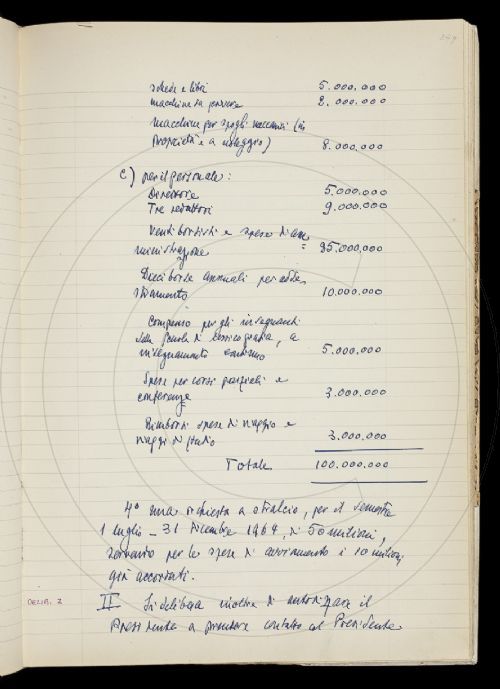 schede e libri 5.000.000
macchine da scrivere 2.000.000
macchine per spogli meccanici (in
proprietà e a noleggio) 8.000.000
c) per il personale:
Direttore 5.000.000
Tre redattori 9.000.000
Venti borsisti e spese di am=
ministrazione 35.000.000
Dieci borse annuali per adde
stramento 10.000.000
Compenso per gli insegnanti
della scuola di lessicografia, a
insegnamento continuo 5.000.000
Spese per corsi parziali e
conferenze 3.000.000
Rimborsi spese di viaggio e
viaggi di studio 3.000.000
Totale 100.000.000
4° una richiesta a stralcio, per il semestre
1 luglio - 31 Dicembre 1964, di 50 milioni,
per le spese di avviamento i 10 milioni
già accordati.
DELIB. 2 II Si delibera inoltre di autorizzare il
Presidente a prendere contatto col Presidente